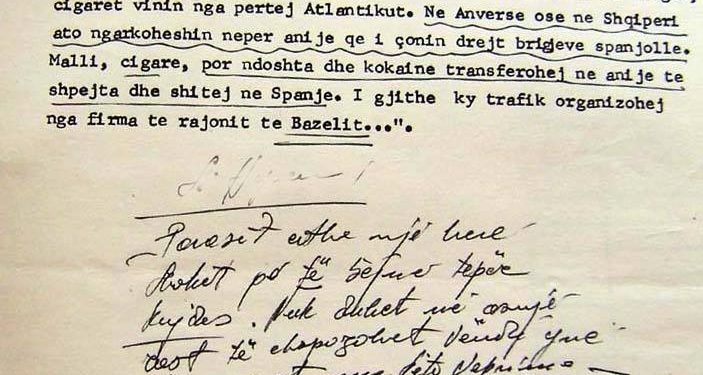 cigaret vinin nga pertej Atlantikut. Ne Anverse ose ne Shqiperi
ato ngarkoheshin neper anije qe i çonin drejt brigjeve spanjolle.
Malli, cigare, por ndoshta dhe kokaine transferohej ne anije te
shpejta dhe shitej ne Spanje. I gjithe ky trafik organizohej
nga firma te rajonit te Bazelit...".
një herë
Shokët po të bëjnë tepër
kujdes. Nuk duhet në asnjë
të ekspozohet Vëndi ynë